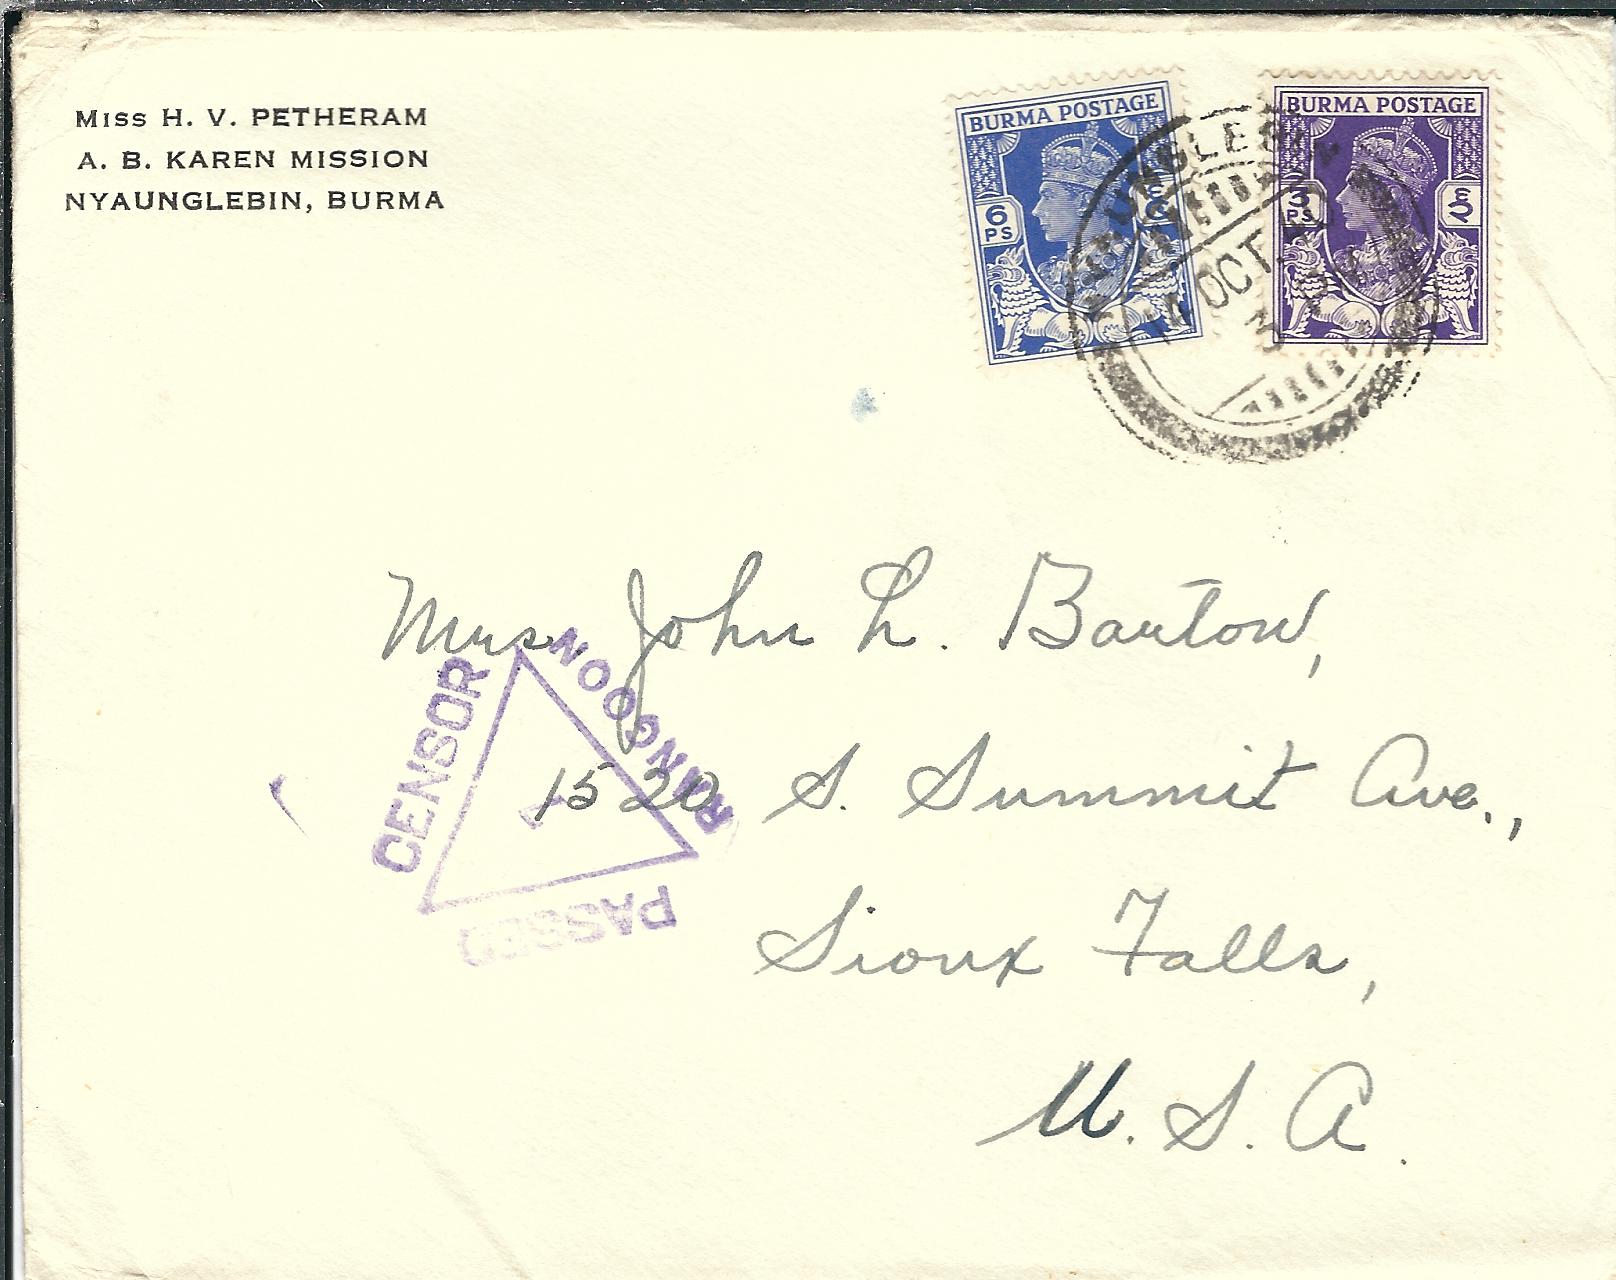 Miss H. V. PETHERAM
A. B. KAREN MISSION
NYAUNGLEBIN, BURMA
BURMA POSTAGE
6 PS
BURMA POSTAGE
3 PS
၃
OCT
Mrs. John L. Bartow,
1520 S. Summit Ave.,
Sioux Falls,
U. S. A.
PASSED
CENSOR
RANGOON